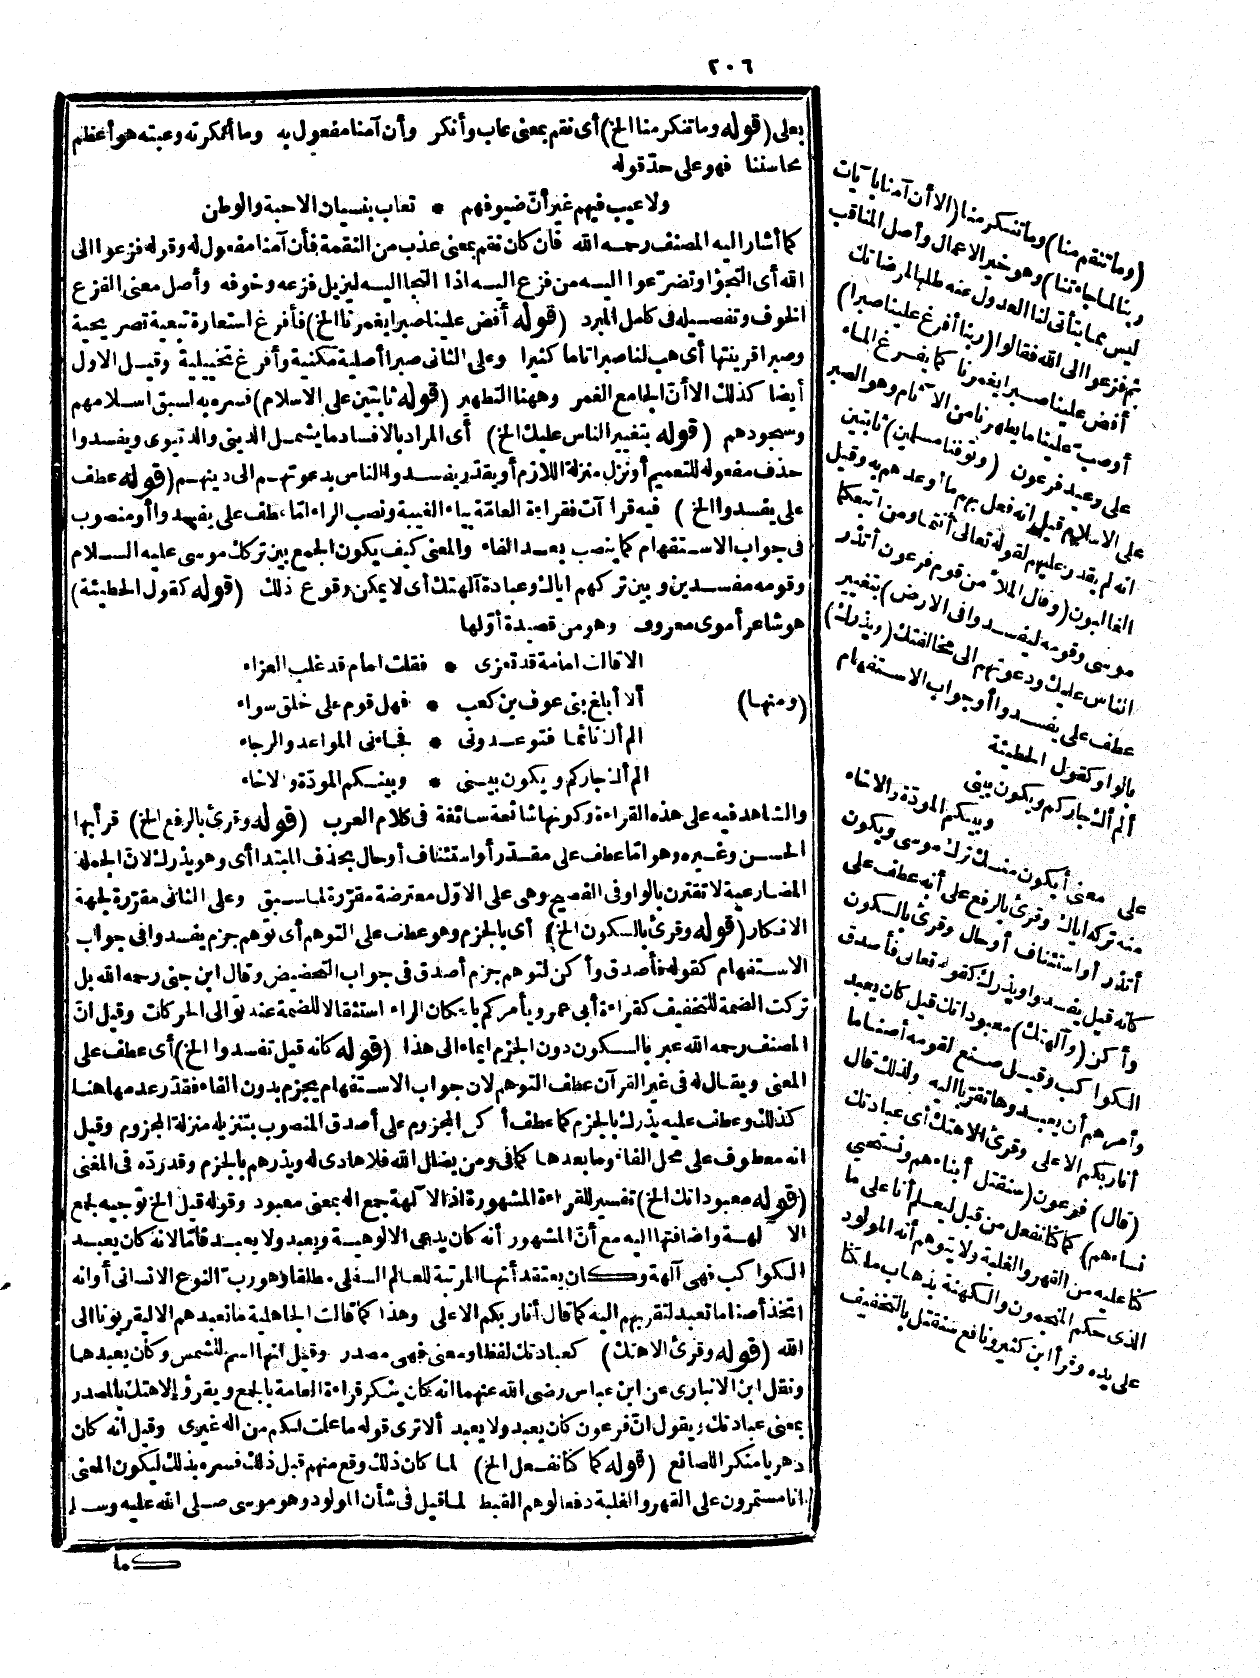 ٢٠٦
بعلى (قوله وما تنكر منا الخ) أى نقم بمعنى عاب وأنكر وأن آمنا مفعول به وما أنكرته وعبته هو أعظم
محاسننا فهو على حدّ قوله
ولا عيب فيهم غير أنّ ضيوفهم * تعاب بنسيان الاحبة والوطن
كما أشار اليه المصنف رحمه الله فان كان نقم بمعنى عذب من النقمة فأن آمنا مفعول له وقوله فزعوا الى
الله أى التجؤا وتضرّعوا اليه من فزع اليه اذا التجا اليه ليزيل فزعه وخوفه وأصل معنى الفزع
الخوف وتفصيله فى كامل المبرد (قوله أفض علينا صبرا يغمرنا الخ) فأفرغ استعارة تبعية تصريحية
وصبرا قرينتها أى هب لنا صبرا تاما كثيرا وعلى الثانى صبرا أصلية مكنية وأفرغ تخييلية وقيل الاول
أيضا كذلك الا أنّ الجامع الغمر وههنا التطهير (قوله ثابتين على الاسلام) فسره به لسبق اسلامهم
وسجودهم (قوله بتغيير الناس عليك الخ) أى المراد بالافساد ما يشمل الدينى والدنيوى ويفسدوا
حذف مفعوله للتعميم أو نزل منزلة اللازم أو يقدّر يفسدوا الناس بدعوتهم الى دينهم (قوله عطف
على يفسدوا الخ) فيه قرا آت فقراءة العامّة بياء الغيبة ونصب الراء امّا عطف على يفسدوا أو منصوب
فى جواب الاستفهام كما ينصب بعد الفاء والمعنى كيف يكون الجمع بين تركك موسى عليه السلام
وقومه مفسدين وبين تركهم اياك وعبادة آلهتك أى لا يمكن وقوع ذلك (قوله كقول الحطيئة)
هو شاعر أموى معروف وهو من قصيدة أوّلها
الا قالت امامة قد تعزى * فقلت امام قد غلب العزاء
(ومنها) ألا أبلغ بنى عوف بن كعب * فهل قوم على خلق سواء
الم ألك نائما فتوعدونى * فجاءنى المواعد والرجاء
الم ألك جاركم ويكون بينى * وبينكم المودّة والاخاء
والشاهد فيه على هذه القراءة وكونها شائعة سائغة فى كلام العرب (قوله وقرئ بالرفع الخ) قرأ بها
الحسن وغيره وهو امّا عطف على مقدّر أو استئناف أو حال بحذف المبتدا أى وهو يذرك لانّ الجملة
المضارعية لا تقترن بالواو فى الفصيح وهى على الاوّل معترضة مقرّرة لما سبق وعلى الثانى مقرّرة لجهة
الانكار (قوله وقرئ بالسكون الخ) أى بالجزم وهو عطف على التوهم أى توهم جزم يفسدوا فى جواب
الاستفهام كقوله فأصدق وأكن لتوهم جزم أصدق فى جواب التحضيض وقال ابن جنى رحمه الله بل
تركت الضمة للتخفيف كقراءة أبى عمرو يأمركم باسكان الراء استثقالا للضمة عند توالى الحركات وقيل انّ
المصنف رحمه الله عبر بالسكون دون الجزم ايماء الى هذا (قوله كانه قيل تفسدوا الخ) أى عطف على
المعنى ويقال له فى غير القرآن عطف التوهم لان جواب الاستفهام يجزم بدون الفاء فقدّر عدمها هنا
كذلك وعطف عليه يذرك بالجزم كما عطف أكن المجزوم على أصدق المنصوب بتنزيله منزلة المجزوم وقيل
انه معطوف على محل الفاء وما بعدها كما فى ومن يضلل الله فلا هادى له ويذرهم بالجزم وقد ردّه فى المغنى
(قوله معبوداتك الخ) تفسير للقراءة المشهورة اذ الآلهة جمع اله بمعنى معبود وقوله قيل الخ توجيه لجمع
الآلهة واضافتها اليه مع أنّ المشهور أنه كان يدعى الالوهية ويعبد ولا يعبد فامّا لانه كان يعبد
الكواكب فهى آلهة وكان يعتقد أنها المرتبة للعالم السفلى مطلقا وهو ربّ النوع الانسانى أو انه
اتخذ أصناما تعبد لتقربهم اليه كما قال أنا ربكم الاعلى وهذا كما قالت الجاهلية ما نعبدهم الا ليقربونا الى
الله (قوله وقرئ الاهتك) كعبادتك لفظا ومعنى فهى مصدر وقيل انها اسم للشمس وكان يعبدها
ونقل ابن الانبارى عن ابن عباس رضى الله عنهما انه كان ينكر قراءة العامة بالجمع ويقرؤ إلاهتك بالمصدر
بمعنى عبادتك ويقول انّ فرعون كان يعبد ولا يعبد ألا ترى قوله ما علمت لكم من اله غيرى وقيل انه كان
دهريا منكرا للصانع (قوله كما كنا نفعل الخ) لما كان ذلك وقع منهم قبل ذلك فسره بذلك ليكون المعنى
انا مستمرون على القهر والغلبة دفعا لوهم القبط لما قيل فى شأن المولود وهو موسى صلى الله عليه وسلم
كما
(وما تنقم منا) وما تنكر منا (الا أن آمنا بآيات
ربنا لما جاءتنا) وهو خير الاعمال وأصل المناقب
ليس مما يتأتى لنا العدول عنه طلبا لمرضاتك
ثم فزعوا الى الله فقالوا (ربنا أفرغ علينا صبرا)
أفض علينا صبرا يغمرنا كما يفرغ الماء
أوصب علينا ما يطهرنا من الآثام وهو الصبر
على وعيد فرعون (وتوفنا مسلمين) ثابتين
على الاسلام قيل انه فعل بهم ما أوعدهم به وقيل
انه لم يقدر عليهم لقوله تعالى أنتما ومن اتبعكما
الغالبون (وقال الملأ من قوم فرعون أتذر
موسى وقومه ليفسدوا فى الارض) بتغيير
الناس عليك ودعوتهم الى مخالفتك (ويذرك)
عطف على يفسدوا أو جواب الاستفهام
بالواو كقول الحطيئة
ألم ألك جاركم ويكون بينى
وبينكم المودّة والاخاء
على معنى أيكون منك ترك موسى ويكون
منه تركه اياك وقرئ بالرفع على أنه عطف على
أتذر أو استئناف أو حال وقرئ بالسكون
كانه قيل يفسدوا ويذرك كقوله تعالى فأصدق
وأكن (وآلهتك) معبوداتك قيل كان يعبد
الكواكب وقيل صنع لقومه أصناما
وأمرهم أن يعبدوها تقربا اليه ولذلك قال
أنا ربكم الاعلى وقرئ الاهتك أى عبادتك
(قال) فرعون (سنقتل أبناءهم ونستحيى
نساءهم) كما كنا نفعل من قبل ليعلم أنا على ما
كنا عليه من القهر والغلبة ولا يتوهم أنه المولود
الذى حكم المنجمون والكهنة بذهاب ملكنا
على يده وقرأ ابن كثير ونافع سنقتل بالتخفيف